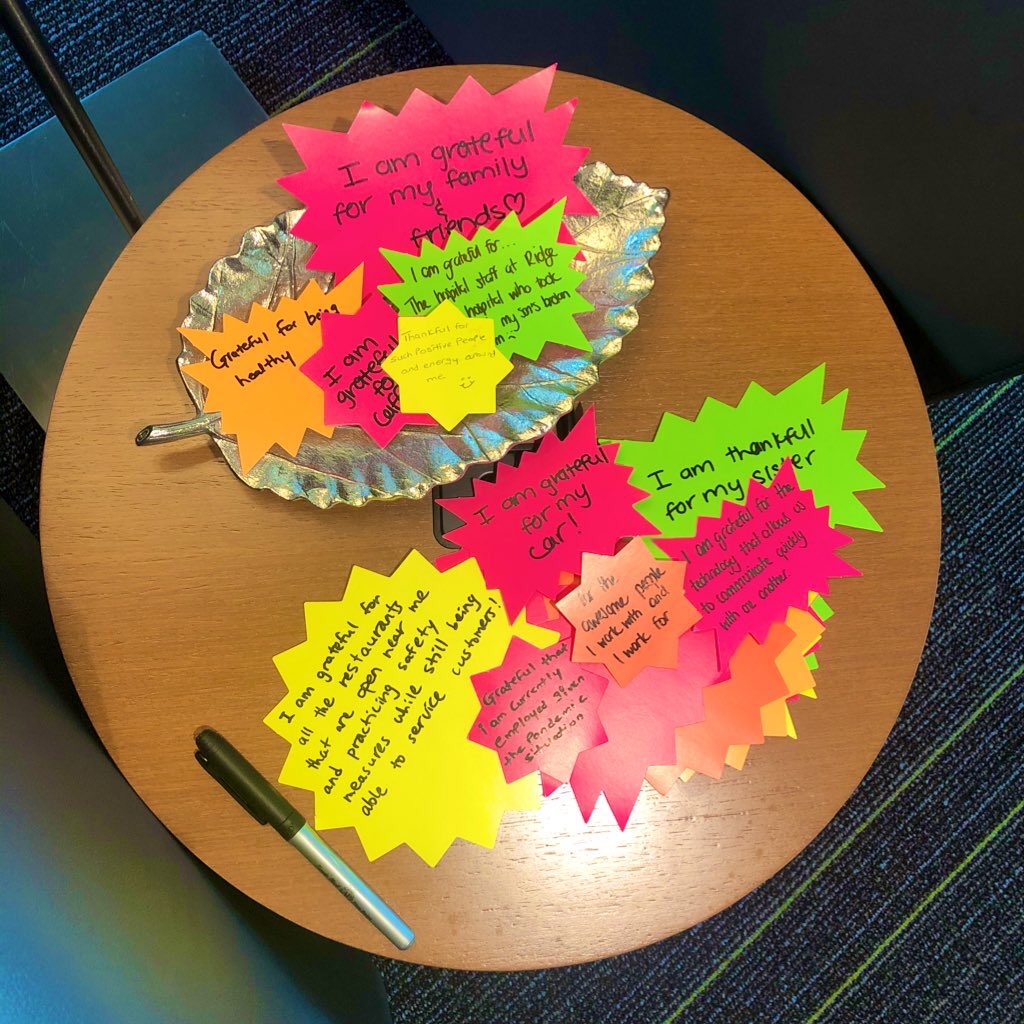 I am grateful
for my family
&
friends♡
I am grateful for...
The hospital staff at Ridge
hospital who took
my sons broken
Grateful for being
healthy
I am
grateful
for
Thankful for...
such positive people
and energy around
me
I am grateful
for my
car!
I am thankful
for my sister
I am grateful for the
technology that allows us
to communicate quickly
with one another
for the
awesome people
I work with and
I work for
Grateful that
I am currently
employed given
the Pandemic
situation
I am grateful for
all the restaurants
that are open near me
and practicing safety
measures while still being
able to service customers!